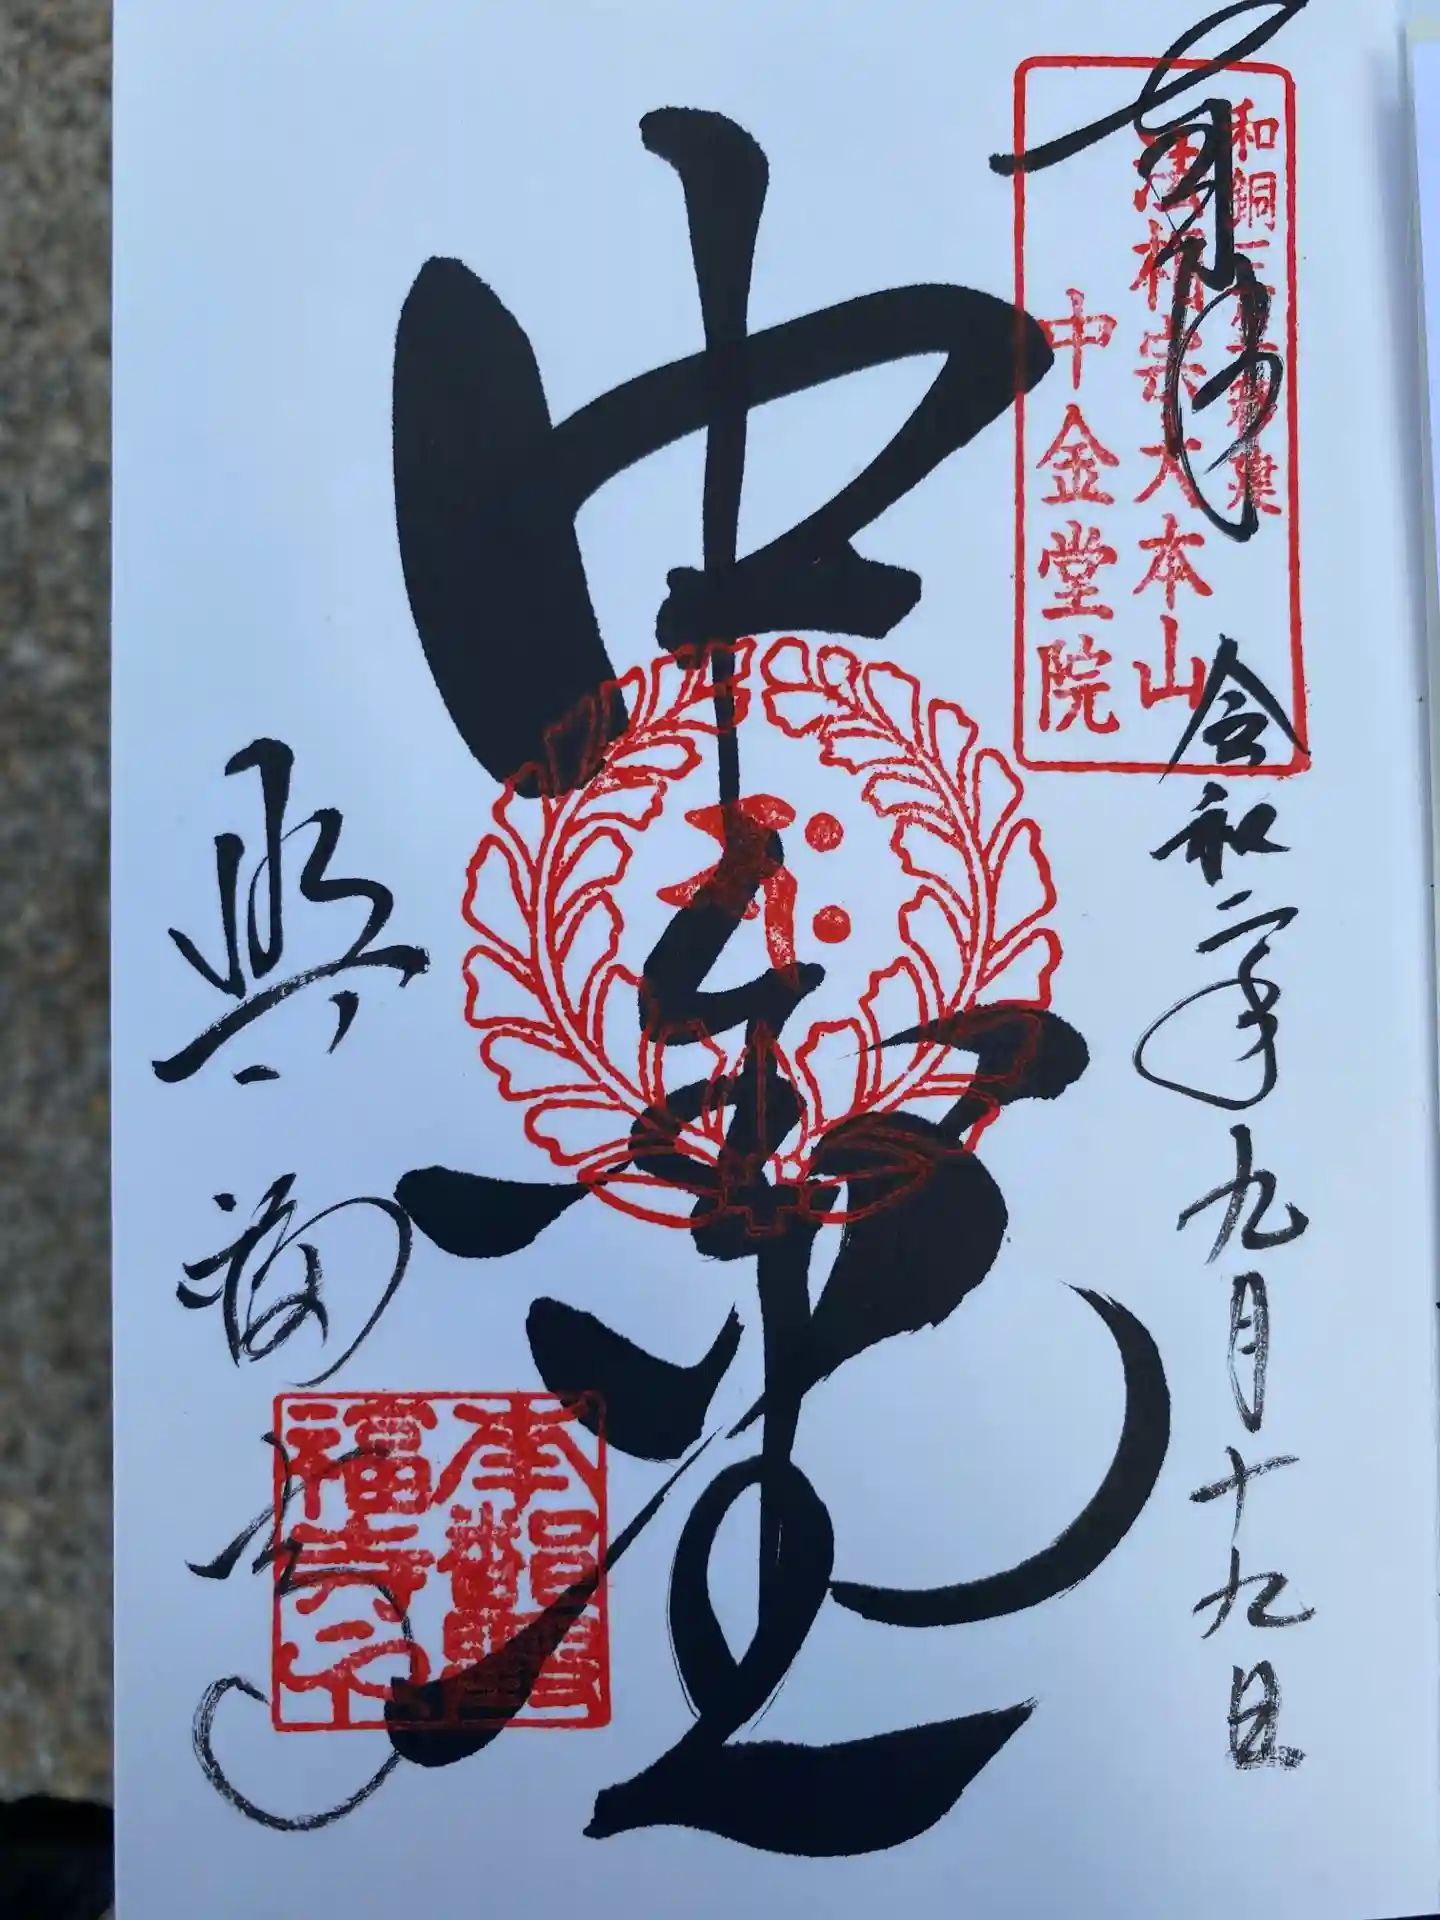 奉拝
和銅三年創建
法相宗大本山
中金堂院
令和二年九月十九日
中金堂
興福寺